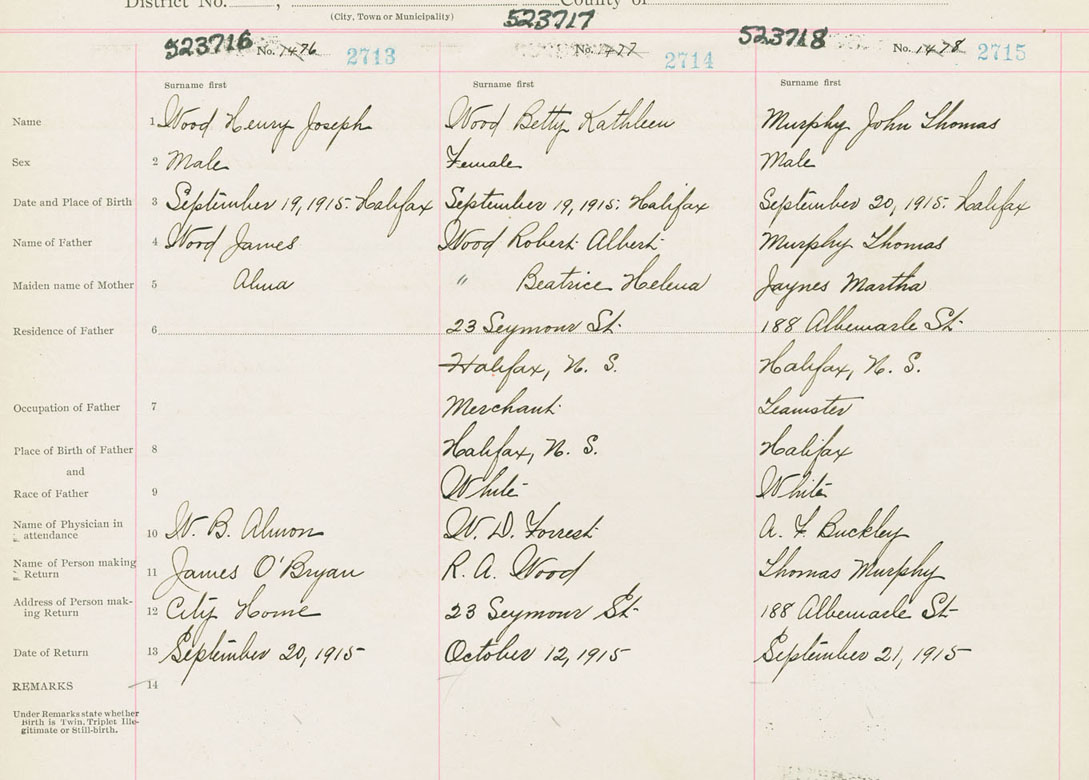 District No. , County of
(City, Town or Municipality)
523716 No. 1476 2713
523717 No. 1477 2714
523718 No. 1478 2715
Surname first Surname first Surname first
Name 1 Wood Henry Joseph Wood Betty Kathleen Murphy John Thomas
Sex 2 Male Female Male
Date and Place of Birth 3 September 19, 1915. Halifax September 19, 1915. Halifax September 20, 1915. Halifax
Name of Father 4 Wood James Wood Robert Albert Murphy Thomas
Maiden name of Mother 5 Alma " Beatrice Helena Jaynes Martha
Residence of Father 6 23 Seymour St. 188 Albemarle St.
Halifax, N. S. Halifax, N. S.
Occupation of Father 7 Merchant Teamster
Place of Birth of Father 8 Halifax, N. S. Halifax
and
Race of Father 9 White White
Name of Physician in
attendance 10 W. B. Almon W. D. Forrest A. F. Buckley
Name of Person making
Return 11 James O'Bryan R. A. Wood Thomas Murphy
Address of Person mak-
ing Return 12 City Home 23 Seymour St. 188 Albemarle St.
Date of Return 13 September 20, 1915 October 12, 1915 September 21, 1915
REMARKS 14
Under Remarks state whether
Birth is Twin, Triplet Ille-
gitimate or Still-birth.